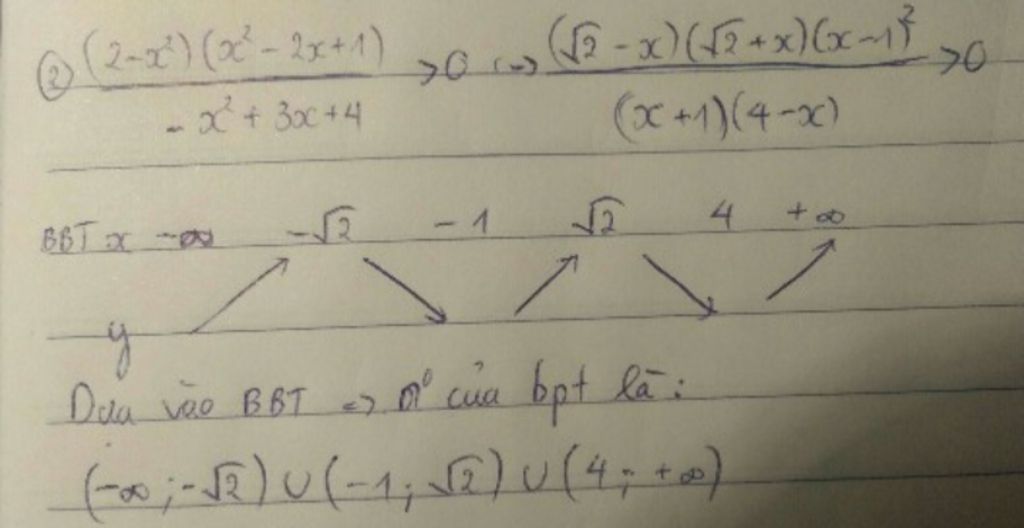 ② (2-x²)(x²-2x+1) / -x²+3x+4 >0 <=> (√2-x)(√2+x)(x-1)² / (x+1)(4-x) >0
BBT x -∞ -√2 -1 √2 4 +∞
y
Dựa vào BBT => n⁰ của bpt là:
(-∞;-√2)∪(-1;√2)∪(4;+∞)